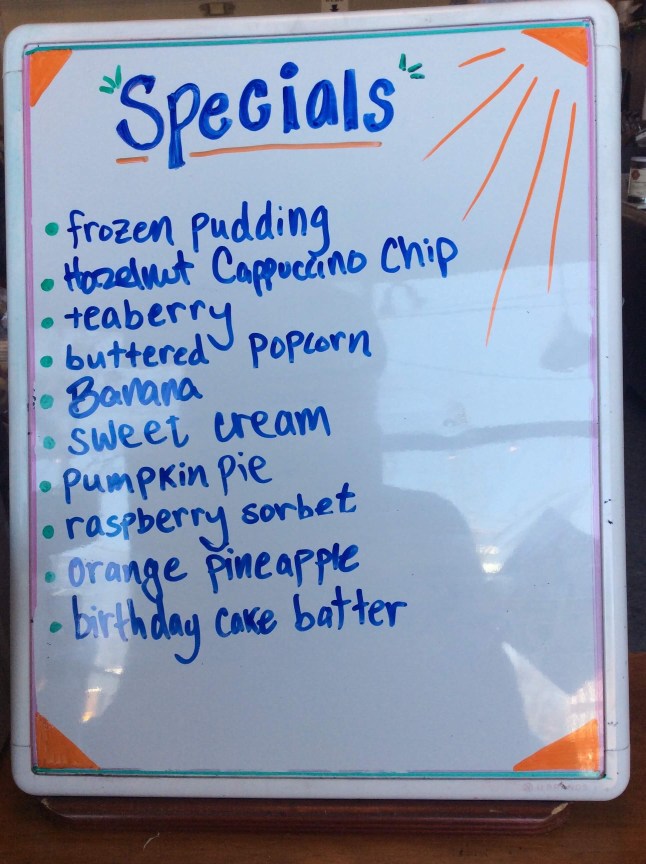 "Specials"
• frozen pudding
• Hazelnut Cappuccino Chip
• teaberry
• buttered popcorn
• Banana
• sweet cream
• pumpkin pie
• raspberry sorbet
• orange pineapple
• birthday cake batter